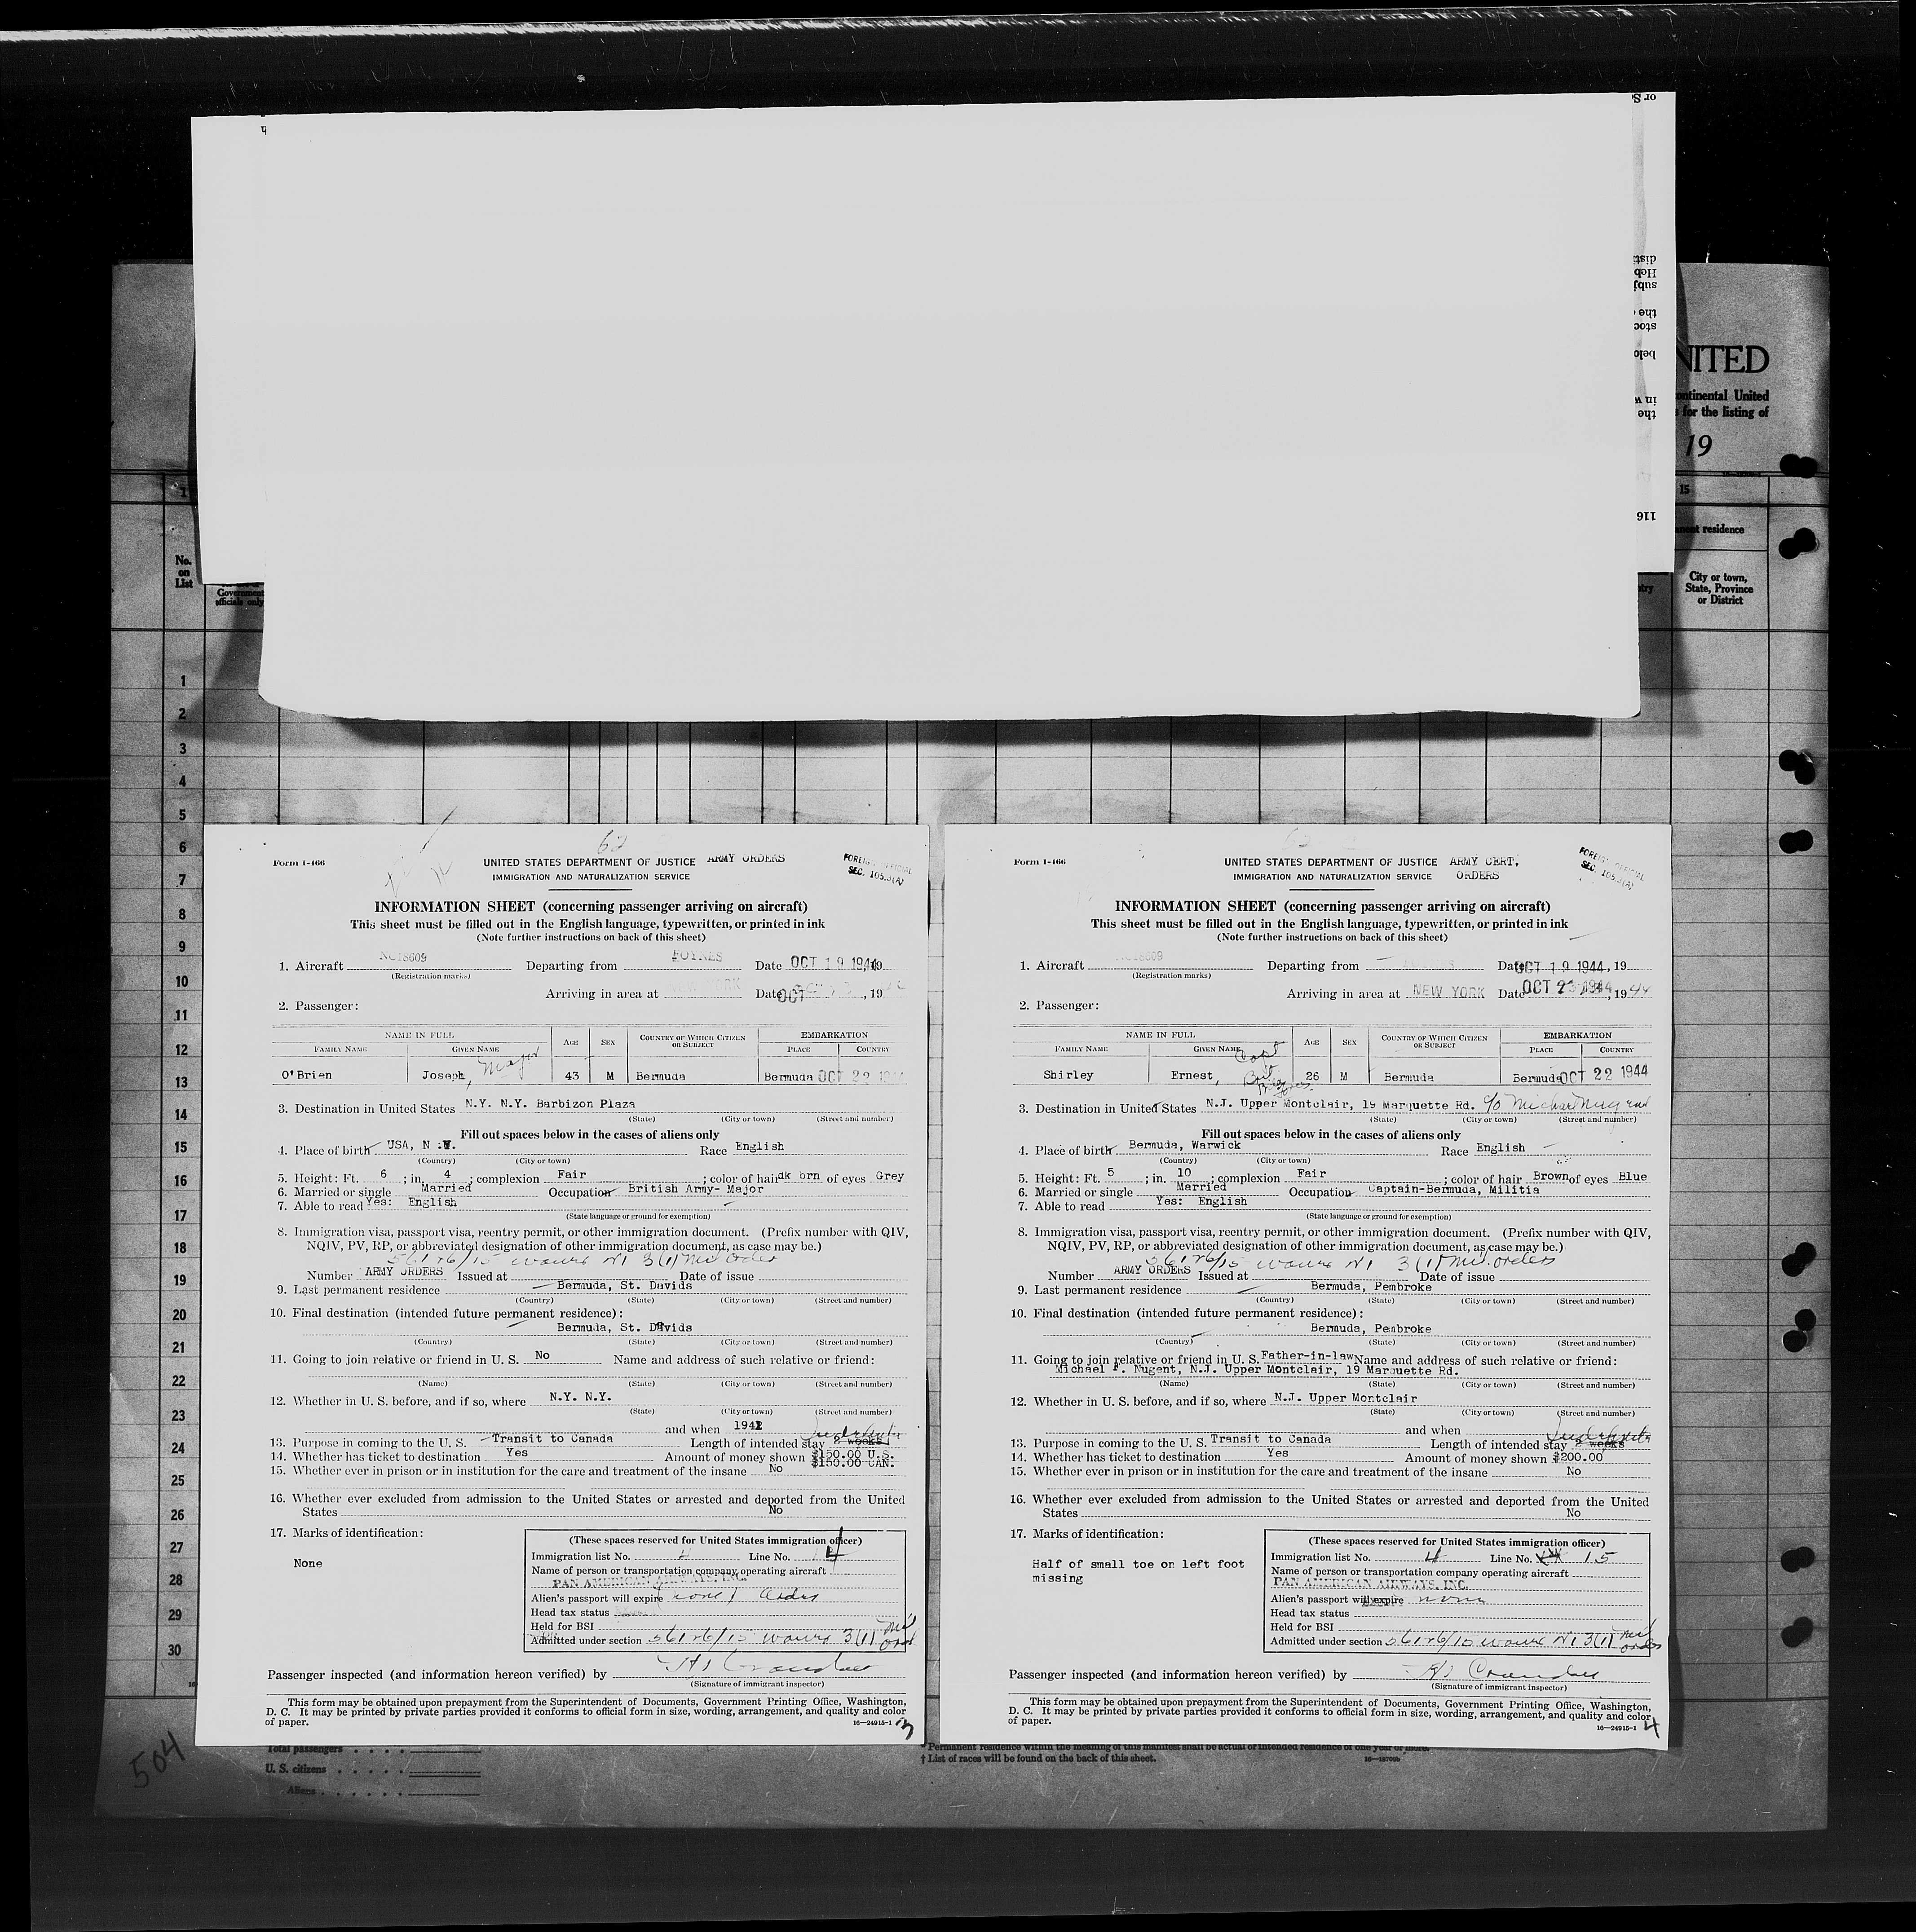 or S
dist
Heb
subj
the
stoc
belo
in w
the
116
NITED
ontinental United
for the listing of
19
15
residence
No.
on
List
Government
officials only
City or town,
State, Province
or District
1
2
3
4
5
6
7
8
9
10
11
12
13
14
15
16
17
18
19
20
21
22
23
24
25
26
27
28
29
30
62
Form I-466
UNITED STATES DEPARTMENT OF JUSTICE ARMY ORDERS
IMMIGRATION AND NATURALIZATION SERVICE
FOREIGN OFFICIAL
SEC. 105.3(A)
INFORMATION SHEET (concerning passenger arriving on aircraft)
This sheet must be filled out in the English language, typewritten, or printed in ink
(Note further instructions on back of this sheet)
1. Aircraft NC18609 Departing from FOYNES Date OCT 19 1944, 19
(Registration marks)
Arriving in area at NEW YORK Date OCT , 19
2. Passenger:
NAME IN FULL AGE SEX COUNTRY OF WHICH CITIZEN OR SUBJECT EMBARKATION
FAMILY NAME GIVEN NAME PLACE COUNTRY
O'Brien Joseph, Major 43 M Bermuda Bermuda OCT 22
3. Destination in United States N.Y. N.Y. Barbizon Plaza
(State) (City or town) (Street and number)
Fill out spaces below in the cases of aliens only
4. Place of birth USA, N.Y. Race English
(Country) (City or town)
5. Height: Ft. 6 ; in. 4 ; complexion Fair ; color of hair dk brn of eyes Grey
6. Married or single Married Occupation British Army- Major
7. Able to read Yes: English
(State language or ground for exemption)
8. Immigration visa, passport visa, reentry permit, or other immigration document. (Prefix number with QIV,
NQIV, PV, RP, or abbreviated designation of other immigration document, as case may be.)
Number ARMY ORDERS Issued at Date of issue
9. Last permanent residence Bermuda, St. Davids
(Country) (State) (City or town) (Street and number)
10. Final destination (intended future permanent residence):
Bermuda, St. Davids
(Country) (State) (City or town) (Street and number)
11. Going to join relative or friend in U. S. No Name and address of such relative or friend:
(Name) (State) (City or town) (Street and number)
12. Whether in U. S. before, and if so, where N.Y. N.Y.
(State) (City or town) (Street and number)
and when 1942
13. Purpose in coming to the U. S. Transit to Canada Length of intended stay 2 weeks
14. Whether has ticket to destination Yes Amount of money shown $150.00 U.S.
$150.00 CAN.
15. Whether ever in prison or in institution for the care and treatment of the insane No
16. Whether ever excluded from admission to the United States or arrested and deported from the United
States No
17. Marks of identification:
None
(These spaces reserved for United States immigration officer)
Immigration list No. 4 Line No. 14
Name of person or transportation company operating aircraft
PAN AMERICAN AIRWAYS, INC.
Alien's passport will expire
Head tax status
Held for BSI
Admitted under section
Passenger inspected (and information hereon verified) by
(Signature of immigrant inspector)
This form may be obtained upon prepayment from the Superintendent of Documents, Government Printing Office, Washington,
D. C. It may be printed by private parties provided it conforms to official form in size, wording, arrangement, and quality and color
of paper. 16—24915-1 3
Form I-466
UNITED STATES DEPARTMENT OF JUSTICE ARMY CERT,
IMMIGRATION AND NATURALIZATION SERVICE ORDERS
FOREIGN OFFICIAL
SEC. 105.3(A)
INFORMATION SHEET (concerning passenger arriving on aircraft)
This sheet must be filled out in the English language, typewritten, or printed in ink
(Note further instructions on back of this sheet)
1. Aircraft NC18609 Departing from Date OCT 19 1944, 19
(Registration marks)
Arriving in area at NEW YORK Date OCT 23 1944, 1944
2. Passenger:
NAME IN FULL AGE SEX COUNTRY OF WHICH CITIZEN OR SUBJECT EMBARKATION
FAMILY NAME GIVEN NAME PLACE COUNTRY
Shirley Ernest, Capt 26 M Bermuda Bermuda OCT 22 1944
3. Destination in United States N.J. Upper Montclair, 19 Marquette Rd. c/o Michael Nugent
(State) (City or town) (Street and number)
Fill out spaces below in the cases of aliens only
4. Place of birth Bermuda, Warwick Race English
(Country) (City or town)
5. Height: Ft. 5 ; in. 10 ; complexion Fair ; color of hair Brown of eyes Blue
6. Married or single Married Occupation Captain-Bermuda, Militia
7. Able to read Yes: English
(State language or ground for exemption)
8. Immigration visa, passport visa, reentry permit, or other immigration document. (Prefix number with QIV,
NQIV, PV, RP, or abbreviated designation of other immigration document, as case may be.)
Number ARMY ORDERS Issued at Date of issue
9. Last permanent residence Bermuda, Pembroke
(Country) (State) (City or town) (Street and number)
10. Final destination (intended future permanent residence):
Bermuda, Pembroke
(Country) (State) (City or town) (Street and number)
11. Going to join relative or friend in U. S. Father-in-law Name and address of such relative or friend:
Michael F. Nugent, N.J. Upper Montclair, 19 Marquette Rd.
(Name) (State) (City or town) (Street and number)
12. Whether in U. S. before, and if so, where N.J. Upper Montclair
(State) (City or town) (Street and number)
and when
13. Purpose in coming to the U. S. Transit to Canada Length of intended stay 2 weeks
14. Whether has ticket to destination Yes Amount of money shown $200.00
15. Whether ever in prison or in institution for the care and treatment of the insane No
16. Whether ever excluded from admission to the United States or arrested and deported from the United
States No
17. Marks of identification:
Half of small toe on left foot
missing
(These spaces reserved for United States immigration officer)
Immigration list No. 4 Line No. 15
Name of person or transportation company operating aircraft
PAN AMERICAN AIRWAYS, INC.
Alien's passport will expire
Head tax status
Held for BSI
Admitted under section
Passenger inspected (and information hereon verified) by
(Signature of immigrant inspector)
This form may be obtained upon prepayment from the Superintendent of Documents, Government Printing Office, Washington,
D. C. It may be printed by private parties provided it conforms to official form in size, wording, arrangement, and quality and color
of paper. 16—24915-1 4
504
Total passengers
U. S. citizens
Aliens
* Permanent residence within the meaning of this manifest shall be actual or intended residence of one year or more.
† List of races will be found on the back of this sheet.